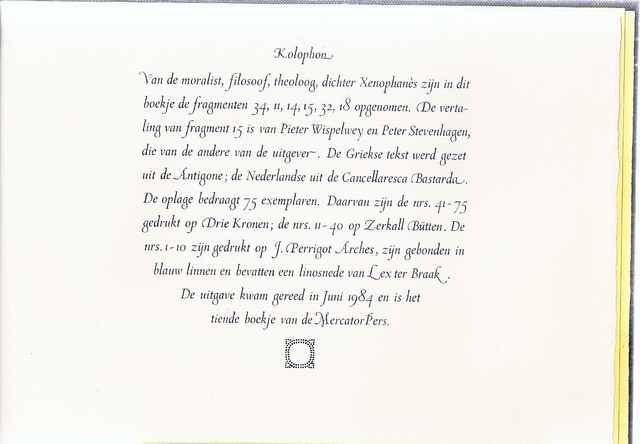 Kolophon
Van de moralist, filosoof, theoloog, dichter Xenophanès zijn in dit
boekje de fragmenten 34, 11, 14, 15, 32, 18 opgenomen. De verta-
ling van fragment 15 is van Pieter Wispelwey en Peter Stevenhagen,
die van de andere van de uitgever. De Griekse tekst werd gezet
uit de Antigone; de Nederlandse uit de Cancellaresca Bastarda.
De oplage bedraagt 75 exemplaren. Daarvan zijn de nrs. 41-75
gedrukt op Drie Kronen; de nrs. 11-40 op Zerkall Bütten. De
nrs. 1-10 zijn gedrukt op J. Perrigot Arches, zijn gebonden in
blauw linnen en bevatten een linosnede van Lex ter Braak.
De uitgave kwam gereed in Juni 1984 en is het
tiende boekje van de MercatorPers.